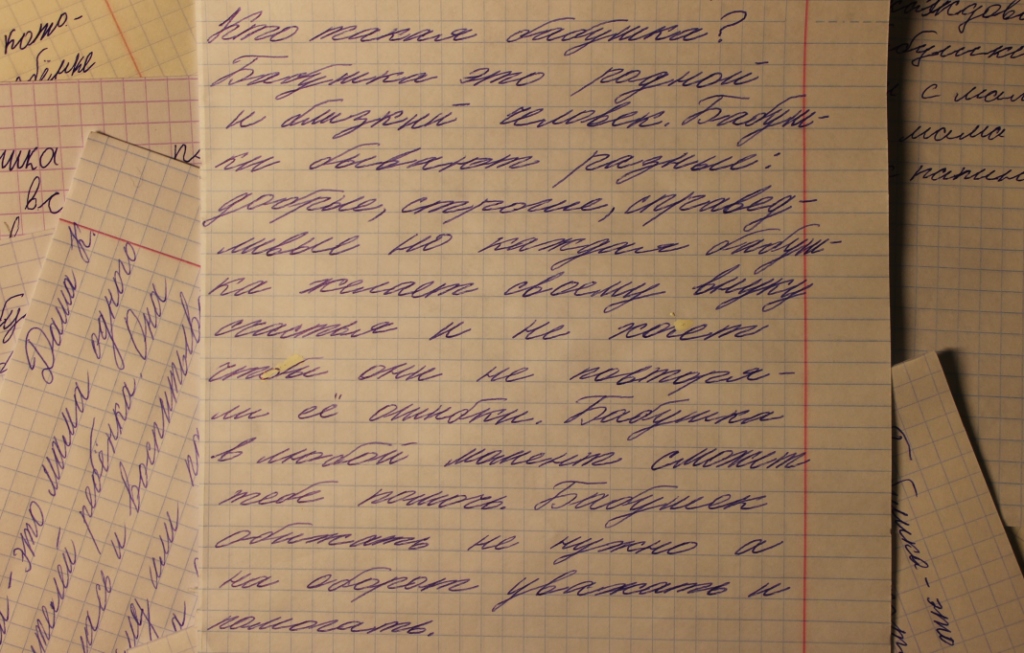 Кто такая бабушка?
Бабушка это родной
и близкий человек. Бабуш-
ки бывают разные:
добрые, строгие, справед-
ливые но каждая бабуш-
ка желает своему внуку
счастья и не хочет
чтобы они не повторя-
ли её ошибки. Бабушка
в любой момент сможит
тебе помочь. Бабушек
обижать не нужно а
на оборот уважать и
помогать.
кото-
вс
Даша К.
это мама одного
ребёнка Она
и воспитыв
или
с мам
мама
папин
это